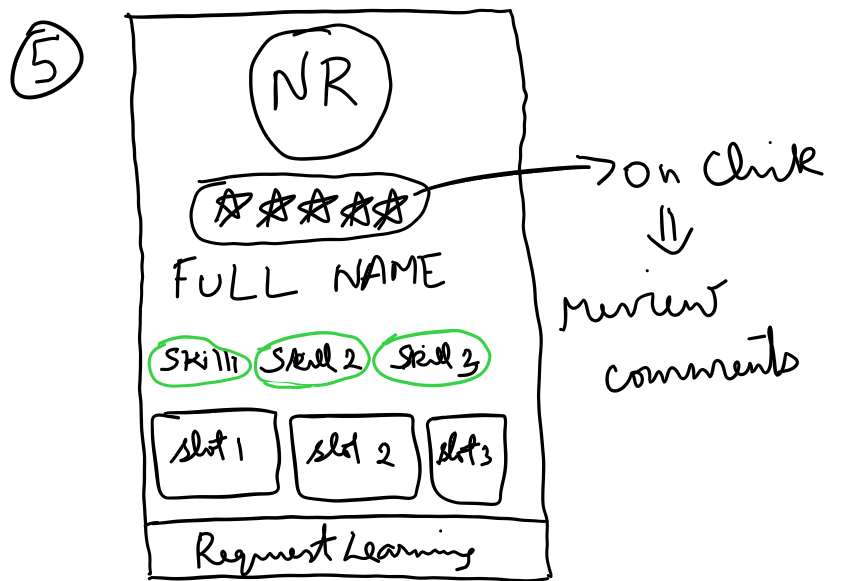 5
NR
on Click
FULL NAME
review
comments
Skill1 Skill 2 Skill 3
Slot 1 Slot 2 Slot 3
Request Learning